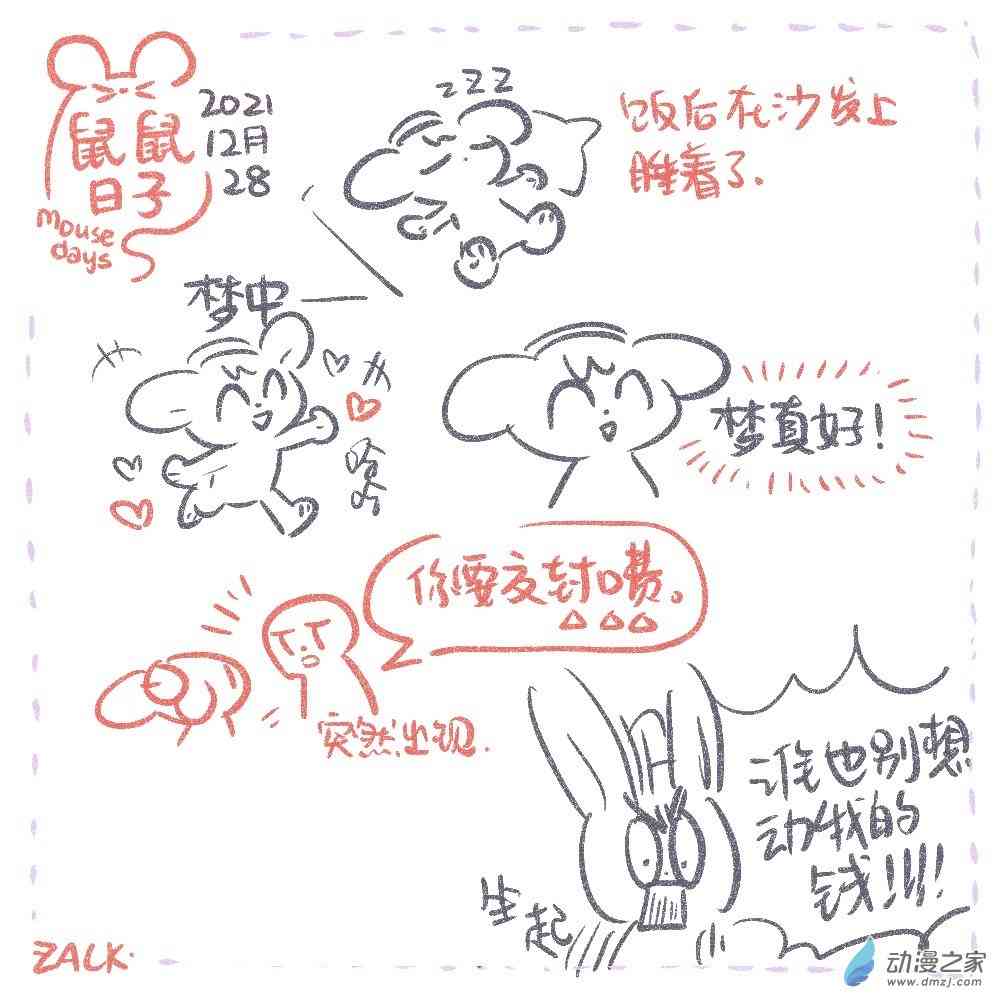 鼠鼠
日子
mouse
days
2021
12月
28
zzz
饭后在沙发上
睡着了.
梦中
哈哈
梦真好!
你要交封口费。
突然出现.
谁也别想
动我的
钱!!!!
坐起
ZALK.
动漫之家
www.dmzj.com